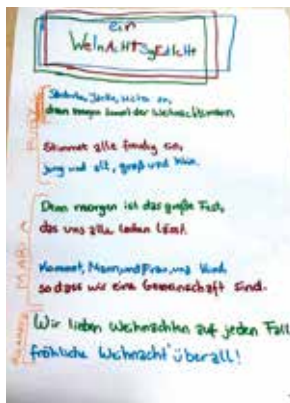 ein
WeiNAcHtSgEdicHt
denn morgen kommt der Weihnachtsmann.
Stimmet alle freudig ein,
jung und alt, groß und klein.
Denn morgen ist das große Fest,
das uns alle leben lässt.
Kommet, Mann, und Frau, und Kind,
so dass wir eine Gemeinschaft sind.
Wir lieben Weihnachten auf jeden Fall
fröhliche Weihnacht überall!
MARIA